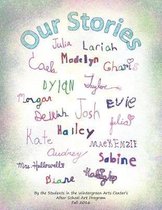 Our Stories
Julia Lariah
Cale Madelyn Charis
DYlAN Taylor
Morgan Josh EViE
Delilah Julia
Kate Hailey MacKENZiE
Audrey Sabine
Mrs. Hallowell
Diane
By the Students in the Wintergreen Arts Center's
After School Art Program
Fall 2016